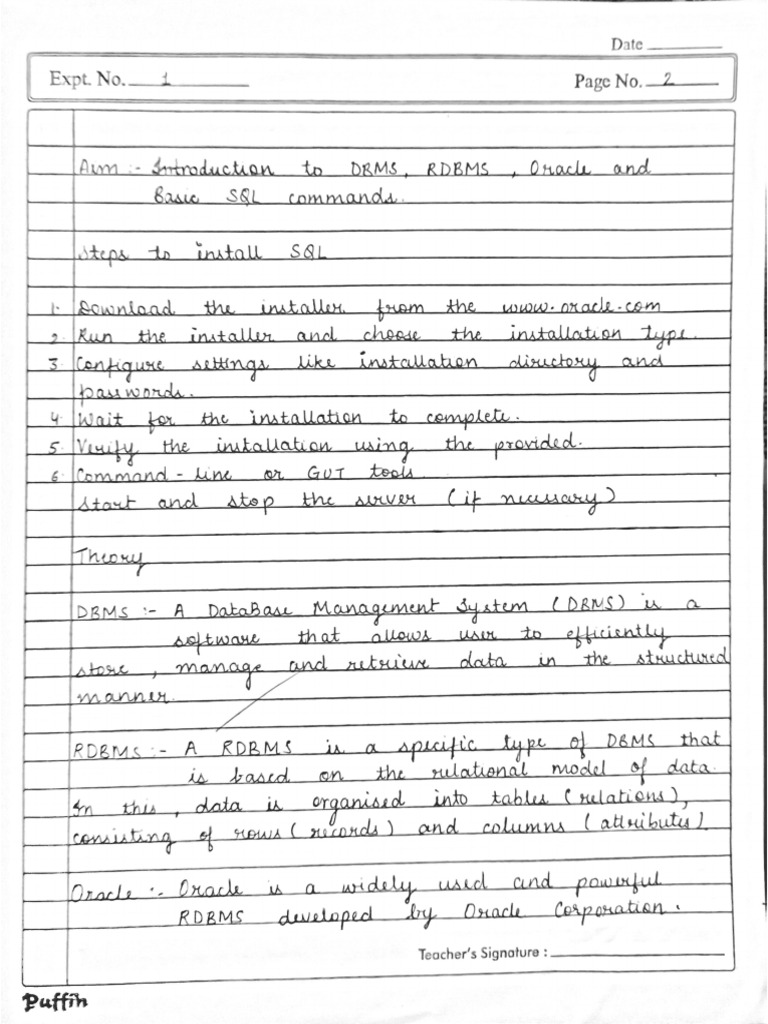 Date
Expt. No. 1 Page No. 2
Aim :- Introduction to DBMS, RDBMS, Oracle and
Basic SQL commands.
Steps to install SQL
1. Download the installer from the www.oracle.com
2. Run the installer and choose the installation type.
3. Configure settings like installation directory and
passwords.
4. Wait for the installation to complete.
5. Verify the installation using the provided.
6. Command - Line or GUI tools.
Start and stop the server (if necessary)
Theory
DBMS :- A DataBase Management System (DBMS) is a
software that allows user to efficiently
store, manage and retrieve data in the structured
manner.
RDBMS :- A RDBMS is a specific type of DBMS that
is based on the relational model of data.
In this, data is organised into tables (relations),
consisting of rows (records) and columns (attributes).
Oracle :- Oracle is a widely used and powerful
RDBMS developed by Oracle Corporation.
Teacher's Signature :
Puffin